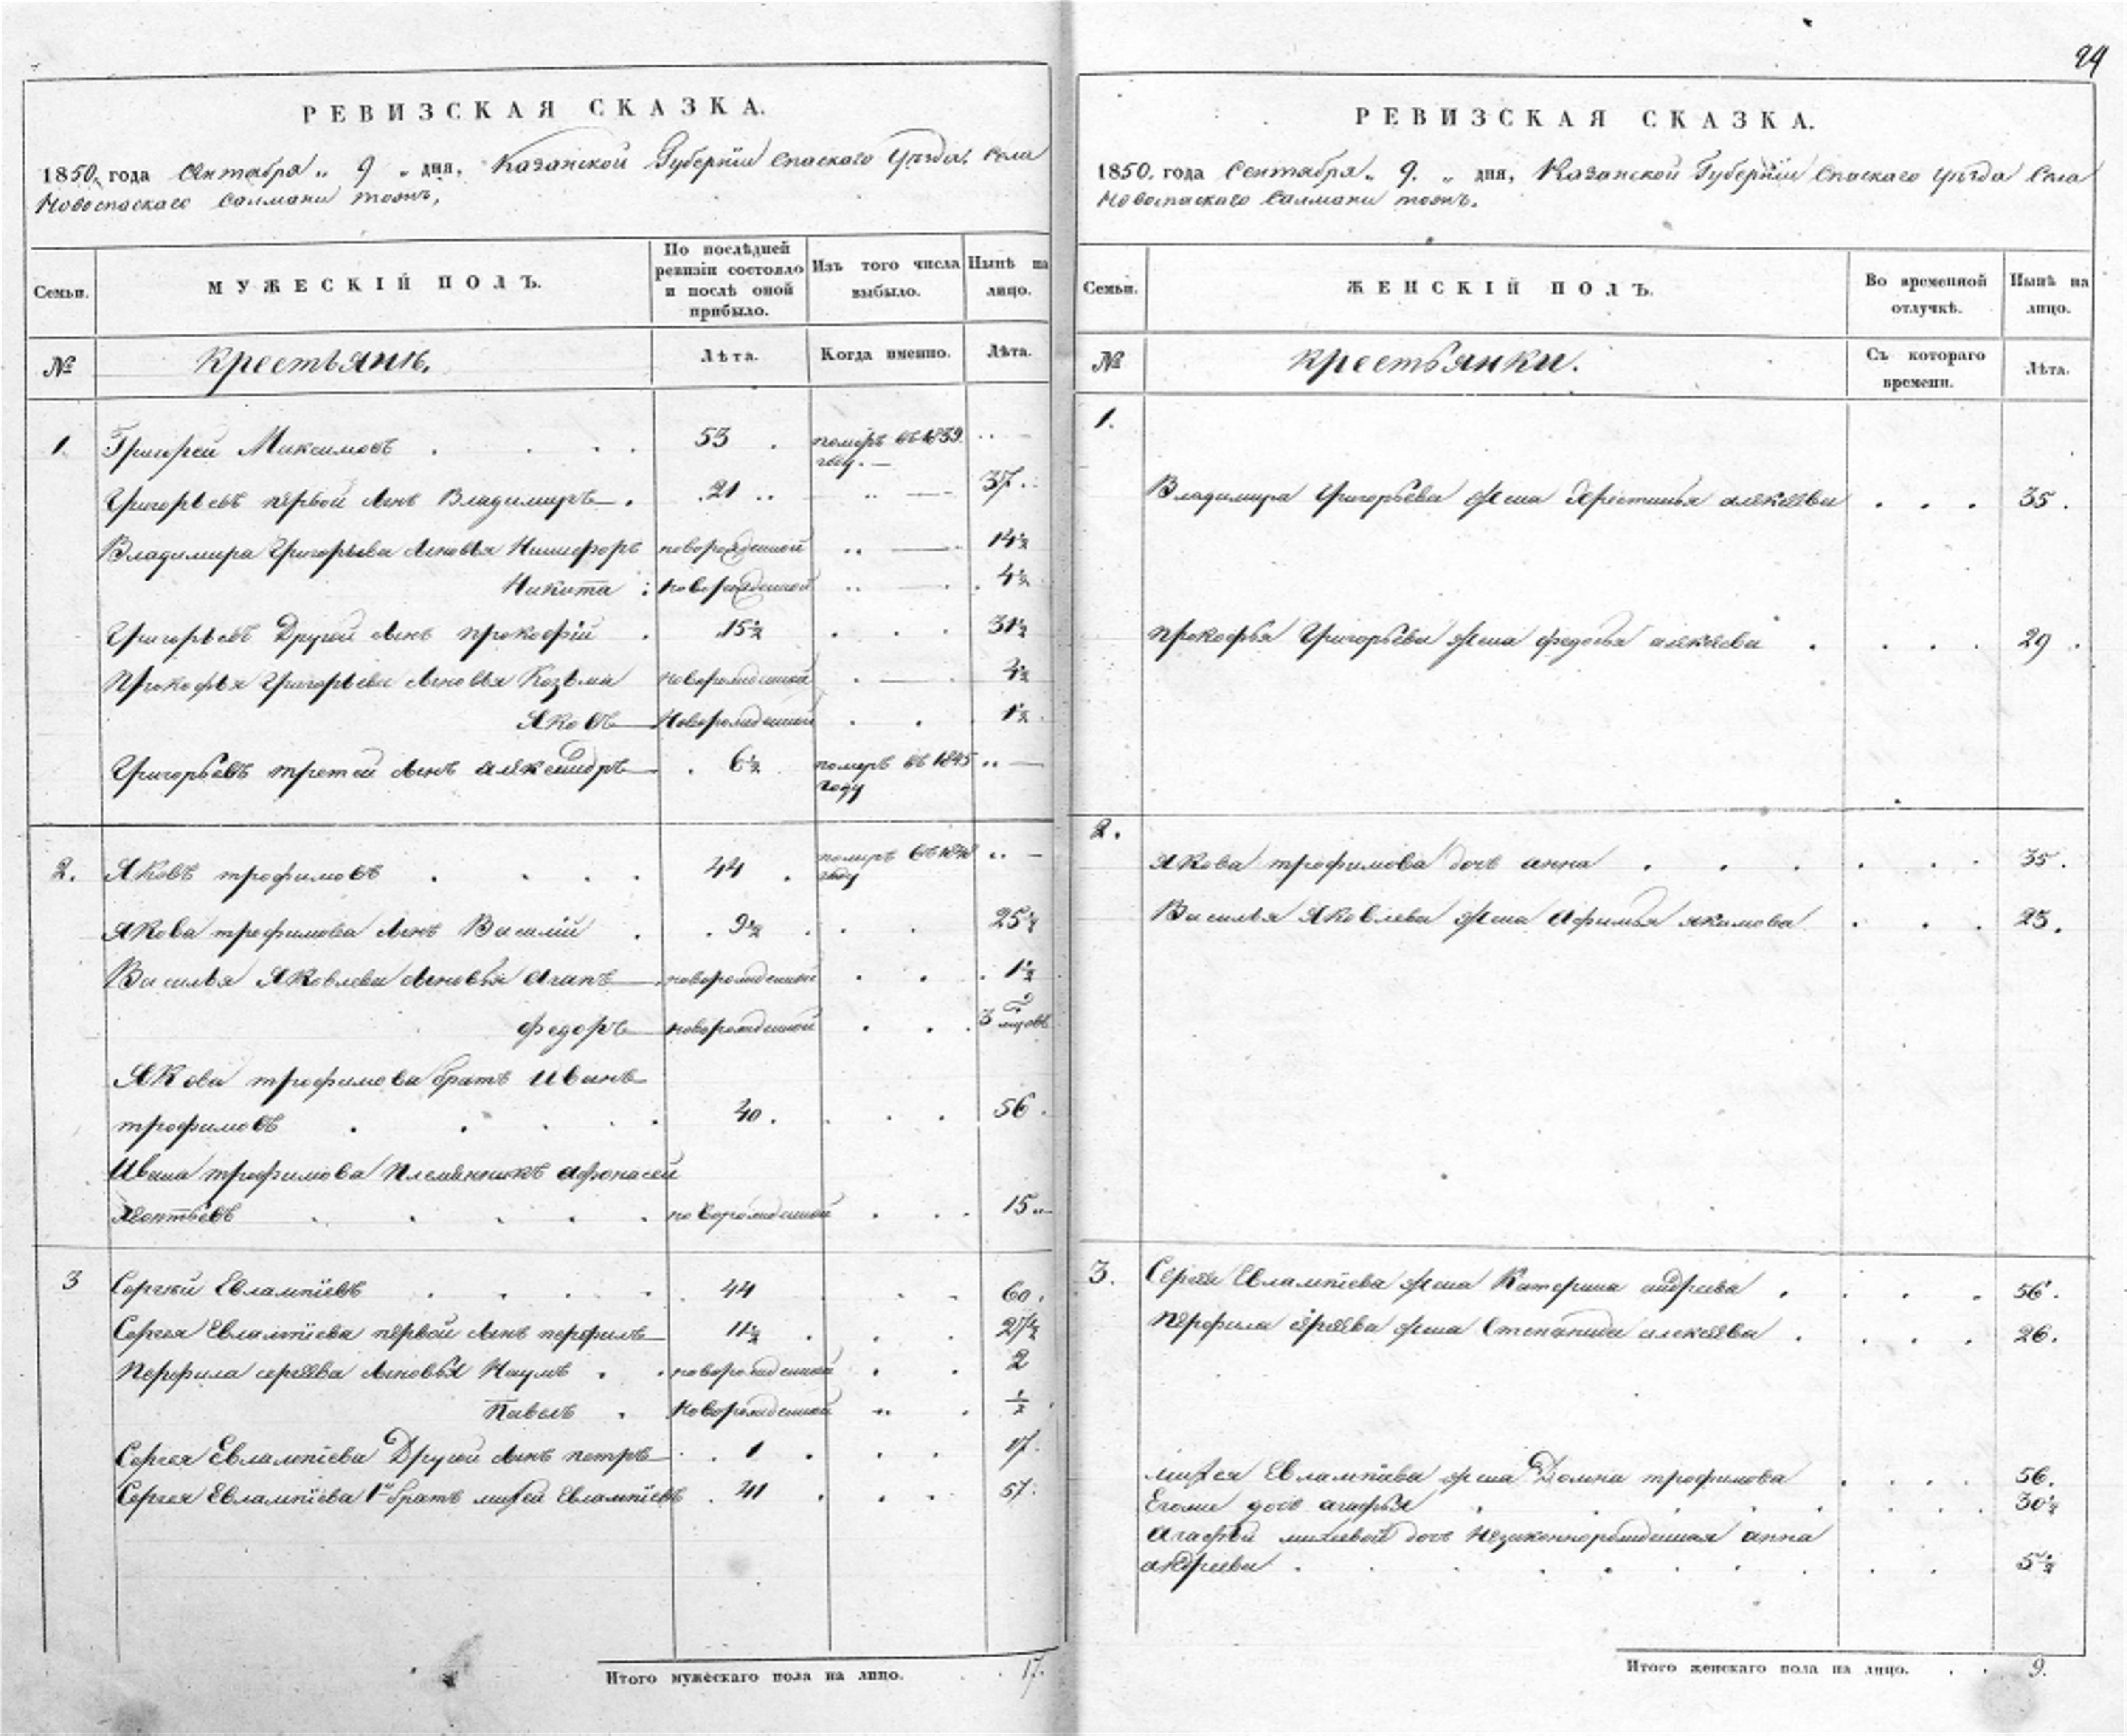 24
РЕВИЗСКАЯ СКАЗКА.
1850. года Сентября „ 9 „ дня, Казанской Губернїи Спаскаго Уѣзда. Села
Новоспаскаго Салмани тожъ.
Семьи.
МУЖЕСКІЙ ПОЛЪ.
По послѣдней ревизіи состояло и послѣ оной прибыло.
Изъ того числа выбыло.
Нынѣ на лицо.
№
Крестьянѣ.
Лѣта.
Когда именно.
Лѣта.
1. Григорей Максимовъ 53 померъ въ 1839 году.
Григорьевъ первой сынъ Владимиръ 21 37
Владимира Григорьева сыновья Никифоръ новорожденной 14½
Никита новорожденной 4½
Григорьевъ Другой сынъ прокофїй 15½ 31½
Прокофья Григорьева сыновья Козьма новорожденной 4½
Яковъ Новорожденной 1½
Григорьевъ третей сынъ александръ 6½ померъ въ 1845 году
2. Яковъ трофимовъ 44 померъ въ году
Якова трофимова сынъ Василїй 9½ 25¼
Василья Яковлева сыновья агапъ новорожденной 1½
федоръ новорожденной 3 мцовъ
Якова трофимова братъ Иванъ
трофимовъ 40. 56.
Ивана трофимова Племянникъ афонасей
Леонтьевъ новорожденной 15
3 Сергѣй Евлампїевъ 44 60.
Сергея Евлампїева первой сынъ перфилъ 11½ 27½
Перфила сергѣева сыновья Наумъ новорожденной 2
Павелъ Новорожденной ½
Сергея Евлампїева Другой сынъ петръ 1 17.
Сергея Евлампїева 1й братъ михей Евлампїевъ 41 57.
Итого мужескаго пола на лицо. 17.
РЕВИЗСКАЯ СКАЗКА.
1850. года Сентября „ 9. „ дня, Казанской Губернїи Спаскаго Уѣзда Села
Новоспаскаго Салмани тожъ.
Семьи.
ЖЕНСКІЙ ПОЛЪ.
Во временной отлучкѣ.
Нынѣ на лицо.
№
Крестьянки.
Съ котораго времени.
Лѣта.
1.
Владимира Григорьева жена Хрестинья алексѣева 35.
прокофья Григорьева жена федосья алексѣева 29
2.
Якова трофимова дочь анна 35.
Василья Яковлева жена Афимья якимова 25.
3. Сергея Евлампїева жена Катерина андреева 56.
Перфила сергѣева жена Степанида алексѣева 26.
михея Евлампїева жена Домна трофимова 56.
Егоже дочь агафья 30¼
агафьи михѣевой дочь Незаконнорожденная анна
андреева 5½
Итого женскаго пола на лицо. 9.